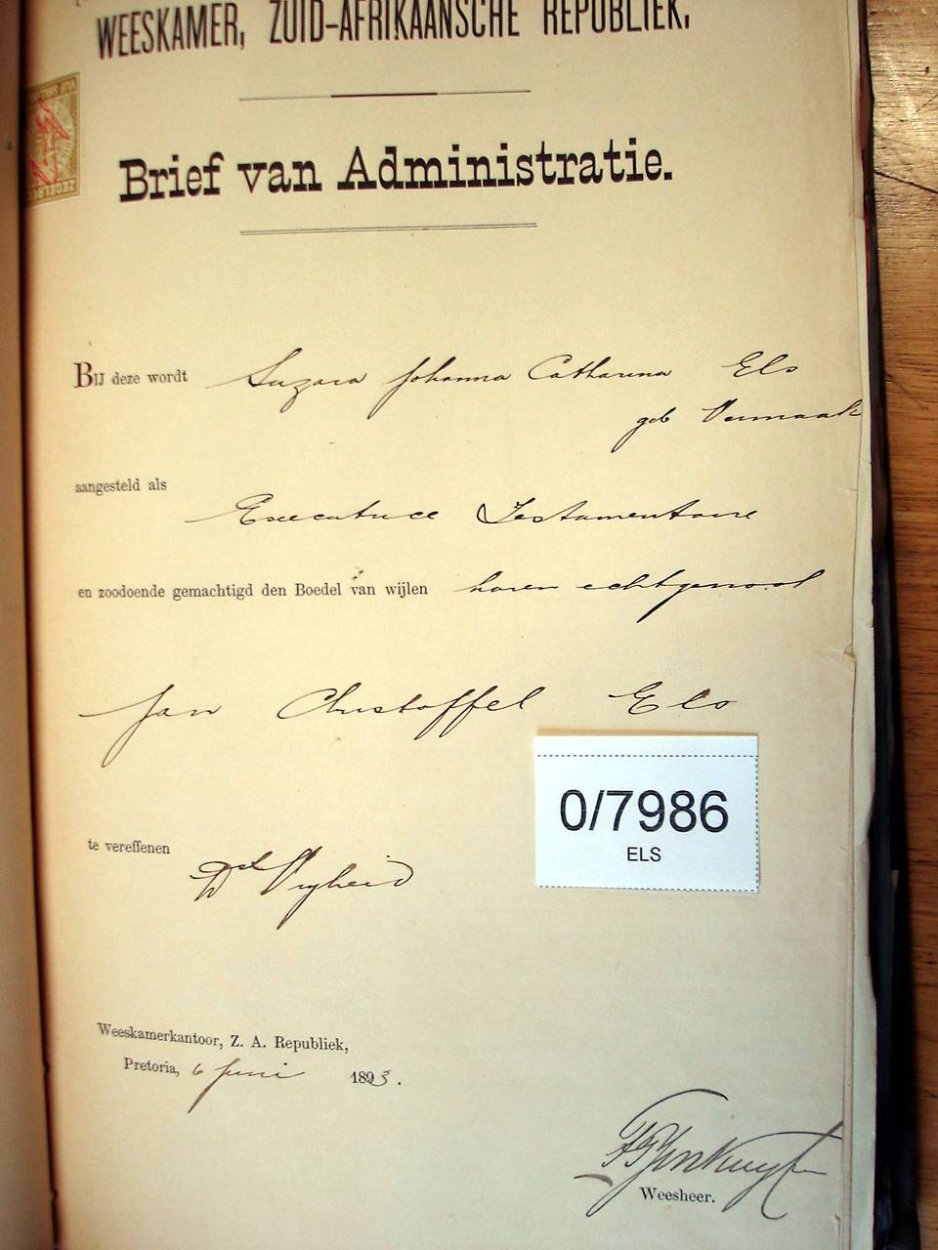 WEESKAMER, ZUID-AFRIKAANSCHE REPUBLIEK.
Brief van Administratie.
Bij deze wordt Suzara Johanna Catharina Els
geb Vermaak
aangesteld als
Executrice Testamentaire
en zoodoende gemachtigd den Boedel van wijlen haren echtgenoot
Jan Christoffel Els
0/7986
ELS
te vereffenen
Dst Vryheid
Weeskamerkantoor, Z. A. Republiek,
Pretoria, 6 Juni 1893.
Weesheer.